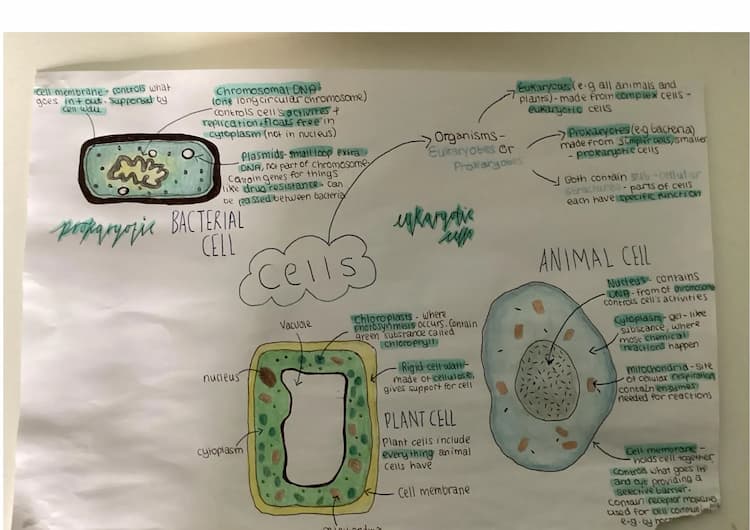 Cell membrane - controls what
goes in + out. Supported by
cell wall
Chromosomal DNA -
(one long circular chromosome)
controls cell's activites +
replication. Floats free in
cytoplasm (not in nucleus)
Plasmids - small loop extra
DNA, not part of chromosome
Contain genes for things
like drug resistance. Can
be passed between bacteria
prokaryotic
BACTERIAL
CELL
Organisms -
Eukaryotes or
Prokaryotes
Eukaryotes (e.g all animals and
plants) - made from complex cells -
eukaryotic cells
Prokaryotes (e.g bacteria)
made from simpler cells, smaller
- prokaryotic cells
Both contain sub-cellular
structures - parts of cells
each have specific function
eukaryotic
cells
Cells
ANIMAL CELL
Nucleus - contains
DNA - from of chromosome
controls cell's activities
Cytoplasm - gel-like
substance, where
most chemical
reactions happen
Mitochondria - site
of cellular respiration
contain enzymes
needed for reactions
Cell membrane -
holds cell together
controls what goes in
and out providing a
selective barrier.
Contain receptor
used for cell
e.g. by
Vacuole
Chloroplasts - where
photosynthesis occurs. Contain
green substance called
chlorophyll
nucleus
Rigid cell wall -
made of cellulose,
gives support for cell
cytoplasm
PLANT CELL
Plant cells include
everything animal
cells have
Cell membrane